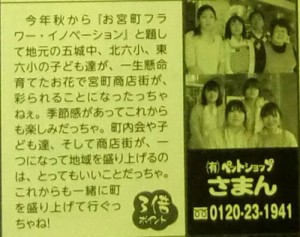 今年秋から『お宮町フラ
ワー・イノベーション』と題し
て地元の五城中、北六小、東
六小の子ども達が、一生懸命
育てたお花で宮町商店街が、
彩られることになったっちゃ
ねぇ。季節感があってこれから
も楽しみだっちゃ。町内会や子
ども達、そして商店街が、一
つになって地域を盛り上げるの
は、とってもいいことだっちゃ。
これからも一緒に町
を盛り上げて行ぐっ
ちゃね!
3倍
ポイント
(有)ペットショップ
さまん
0120-23-1941